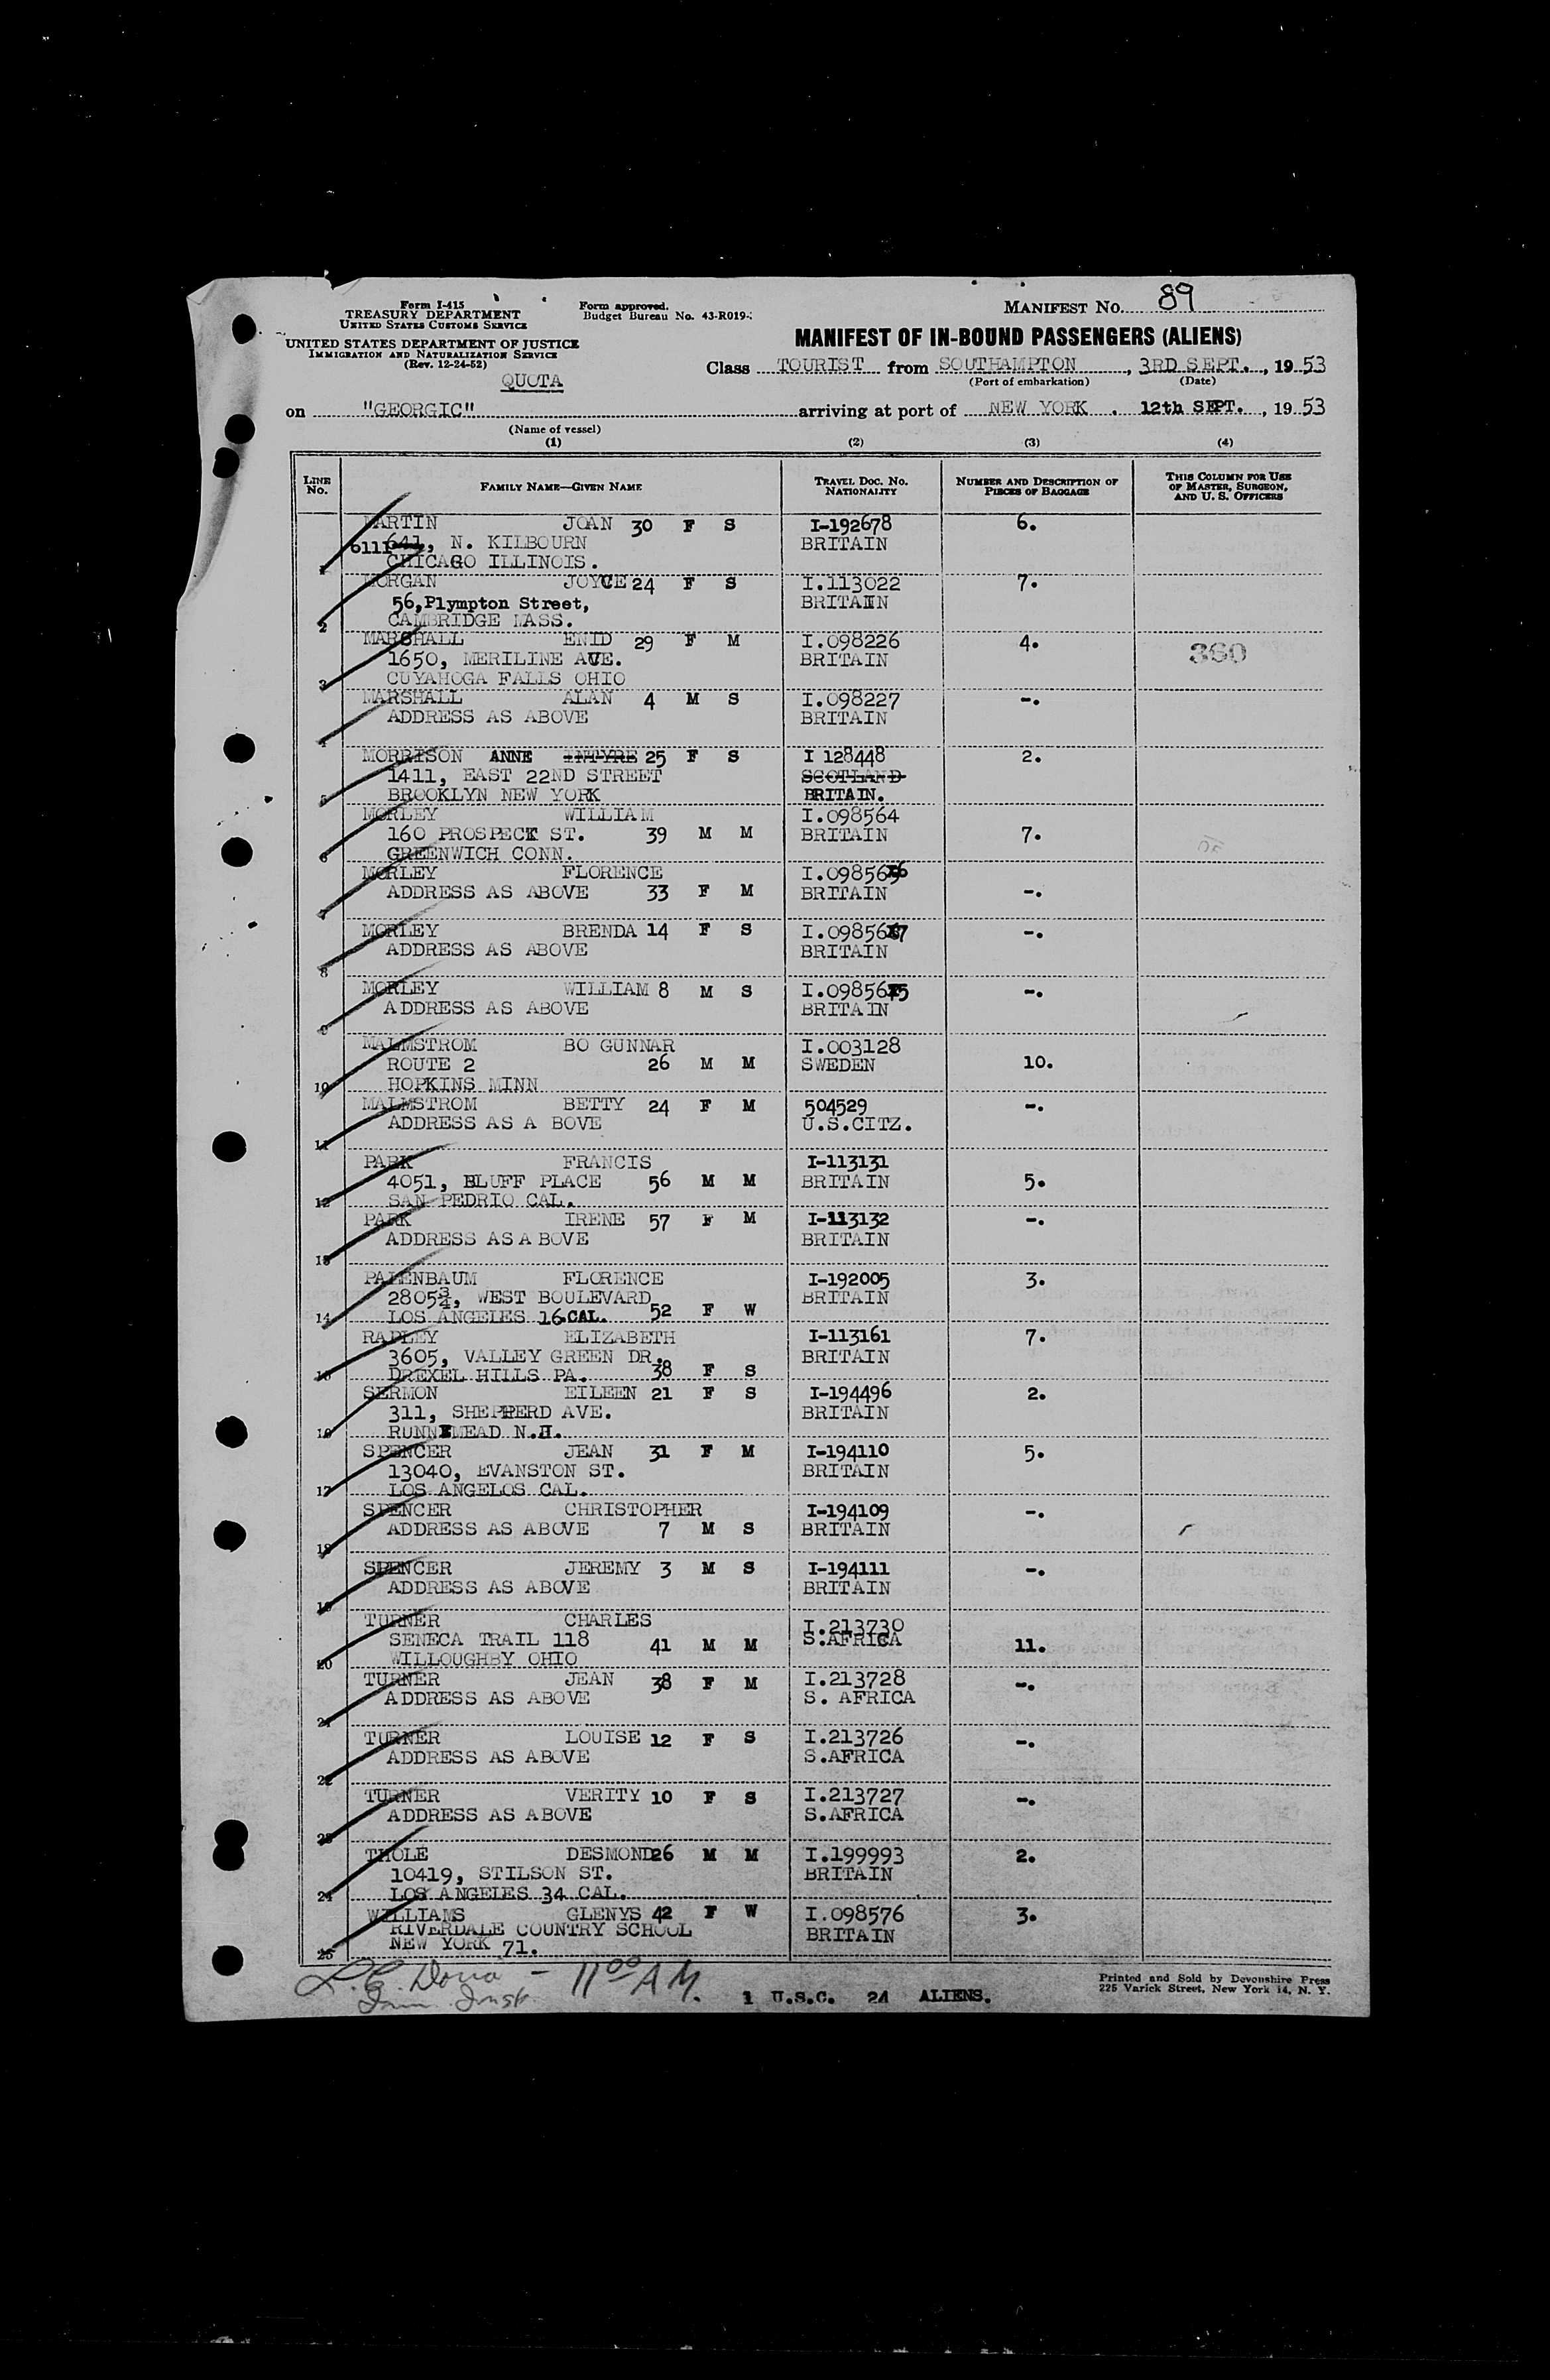 Form I-415
TREASURY DEPARTMENT
UNITED STATES CUSTOMS SERVICE
UNITED STATES DEPARTMENT OF JUSTICE
IMMIGRATION AND NATURALIZATION SERVICE
(Rev. 12-24-52)
QUOTA
Form approved.
Budget Bureau No. 43-R019-
MANIFEST NO. 89
MANIFEST OF IN-BOUND PASSENGERS (ALIENS)
Class TOURIST from SOUTHAMPTON, 3RD SEPT., 19 53
(Port of embarkation) (Date)
on "GEORGIC" arriving at port of NEW YORK . 12th SEPT. , 19 53
(Name of vessel)
(1) (2) (3) (4)
LINE No. FAMILY NAME—GIVEN NAME TRAVEL DOC. NO. NATIONALITY NUMBER AND DESCRIPTION OF PIECES OF BAGGAGE THIS COLUMN FOR USE OF MASTER, SURGEON, AND U. S. OFFICERS
MARTIN JOAN 30 F S I-192678 6.
6111 641, N. KILBOURN BRITAIN
1 CHICAGO ILLINOIS.
MORGAN JOYCE 24 F S I.113022 7.
56,Plympton Street, BRITAIN
2 CAMBRIDGE MASS.
MARSHALL ENID 29 F M I.098226 4.
1650, MERILINE AVE. BRITAIN 360
3 CUYAHOGA FALLS OHIO
MARSHALL ALAN 4 M S I.098227 -.
ADDRESS AS ABOVE BRITAIN
4
MORRISON ANNE INTYRE 25 F S I 128448 2.
1411, EAST 22ND STREET SCOTLAND
5 BROOKLYN NEW YORK BRITAIN.
MORLEY WILLIAM I.098564
160 PROSPECT ST. 39 M M BRITAIN 7.
6 GREENWICH CONN.
MORLEY FLORENCE I.098566
ADDRESS AS ABOVE 33 F M BRITAIN -.
7
MORLEY BRENDA 14 F S I.098567 -.
ADDRESS AS ABOVE BRITAIN
8
MORLEY WILLIAM 8 M S I.098565 -.
ADDRESS AS ABOVE BRITAIN
9
MALMSTROM BO GUNNAR I.003128
ROUTE 2 26 M M SWEDEN 10.
10 HOPKINS MINN
MALMSTROM BETTY 24 F M 504529 -.
ADDRESS AS A BOVE U.S.CITZ.
11
PARK FRANCIS I-113131
4051, BLUFF PLACE 56 M M BRITAIN 5.
12 SAN PEDRIO CAL.
PARK IRENE 57 F M I-113132 -.
ADDRESS AS A BOVE BRITAIN
13
PALENBAUM FLORENCE I-192005 3.
2805¾, WEST BOULEVARD BRITAIN
14 LOS ANGELES 16.CAL. 52 F W
RADLEY ELIZABETH I-113161 7.
3605, VALLEY GREEN DR. BRITAIN
15 DREXEL HILLS PA. 38 F S
SERMON EILEEN 21 F S I-194496 2.
311, SHEPPERD AVE. BRITAIN
16 RUNNEMEAD N.J.
SPENCER JEAN 31 F M I-194110 5.
13040, EVANSTON ST. BRITAIN
17 LOS ANGELOS CAL.
SPENCER CHRISTOPHER I-194109 -.
ADDRESS AS ABOVE 7 M S BRITAIN
18
SPENCER JEREMY 3 M S I-194111 -.
ADDRESS AS ABOVE BRITAIN
19
TURNER CHARLES I.213730
SENECA TRAIL 118 41 M M S.AFRICA 11.
20 WILLOUGHBY OHIO
TURNER JEAN 38 F M I.213728 -.
ADDRESS AS ABOVE S. AFRICA
21
TURNER LOUISE 12 F S I.213726 -.
ADDRESS AS ABOVE S.AFRICA
22
TURNER VERITY 10 F S I.213727 -.
ADDRESS AS ABOVE S.AFRICA
23
THOLE DESMOND 26 M M I.199993 2.
10419, STILSON ST. BRITAIN
24 LOS ANGELES 34 CAL.
WILLIAMS GLENYS 42 F W I.098576 3.
RIVERDALE COUNTRY SCHOOL BRITAIN
25 NEW YORK 71.
11 00 AM.
1 U.S.C. 24 ALIENS.
Printed and Sold by Devonshire Press
225 Varick Street, New York 14, N. Y.